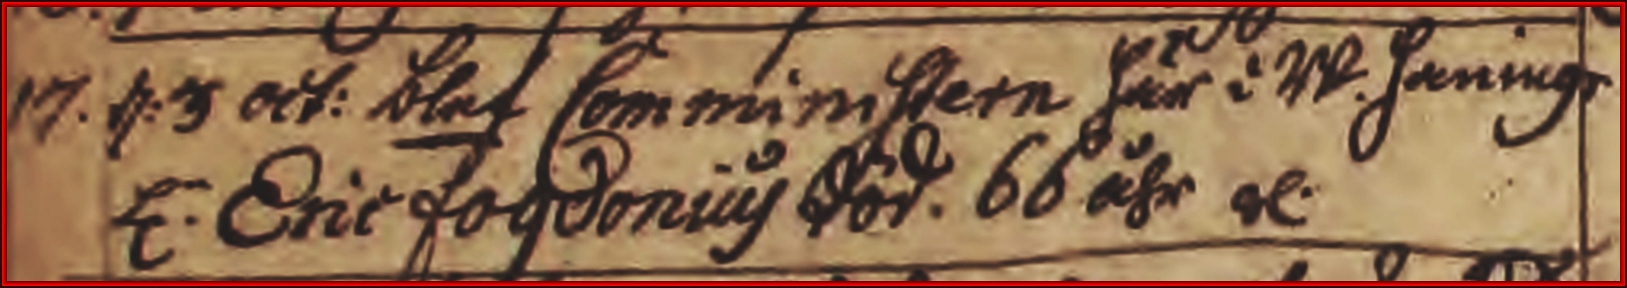 17. d: 3 oct: blef Comministern här i W. Haninge
H. Eric Fogdonius död. 66 åhr gl.